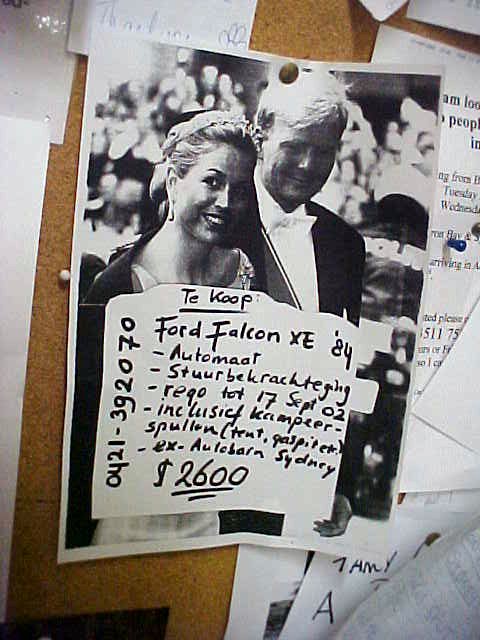 Te Koop:
Ford Falcon XE '84
- Automaat
- Stuurbekrachteging
- rego tot 17 Sept 02
- inclusief kampeer-
spullen (tent, gaspit etc.)
- ex-Autobarn Sydney
$2600
0421-392070
am loo
people
in
ng from B
Tuesday
Wednesda
ron Bay & S
arriving in A
ted please
3511 75
urs or F
so I ca
I AM
A